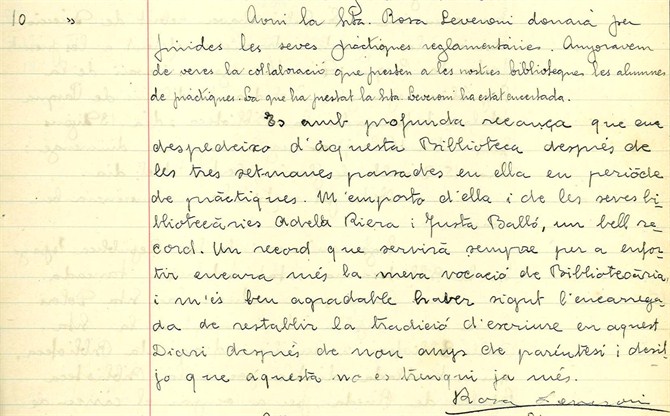 10 " Avui la Srta. Rosa Leveroni donarà per
finides les seves pràctiques reglamentàries. Anyoravem
de veres la collaboració que presten a les nostres biblioteques les alumnes
de pràctiques. La que ha prestat la Srta Leveroni ha estat encertada.
Es amb profunda recança que em
despedeixo d'aquesta Biblioteca després de
les tres setmanes passades en ella en període
de pràctiques. M'emporto d'ella i de les seves bi-
bliotecàries Adella Riera i Justa Balló, un bell re-
cord. Un record que servirà sempre per a enfor-
tir encara més la meva vocació de Bibliotecària,
i m'és ben agradable haver sigut l'encarrega-
da de restablir la tradició d'escriure en aquest
Diari després de nou anys de paréntesi i desit-
jo que aquesta no és trenqui ja més.
Rosa Leveroni